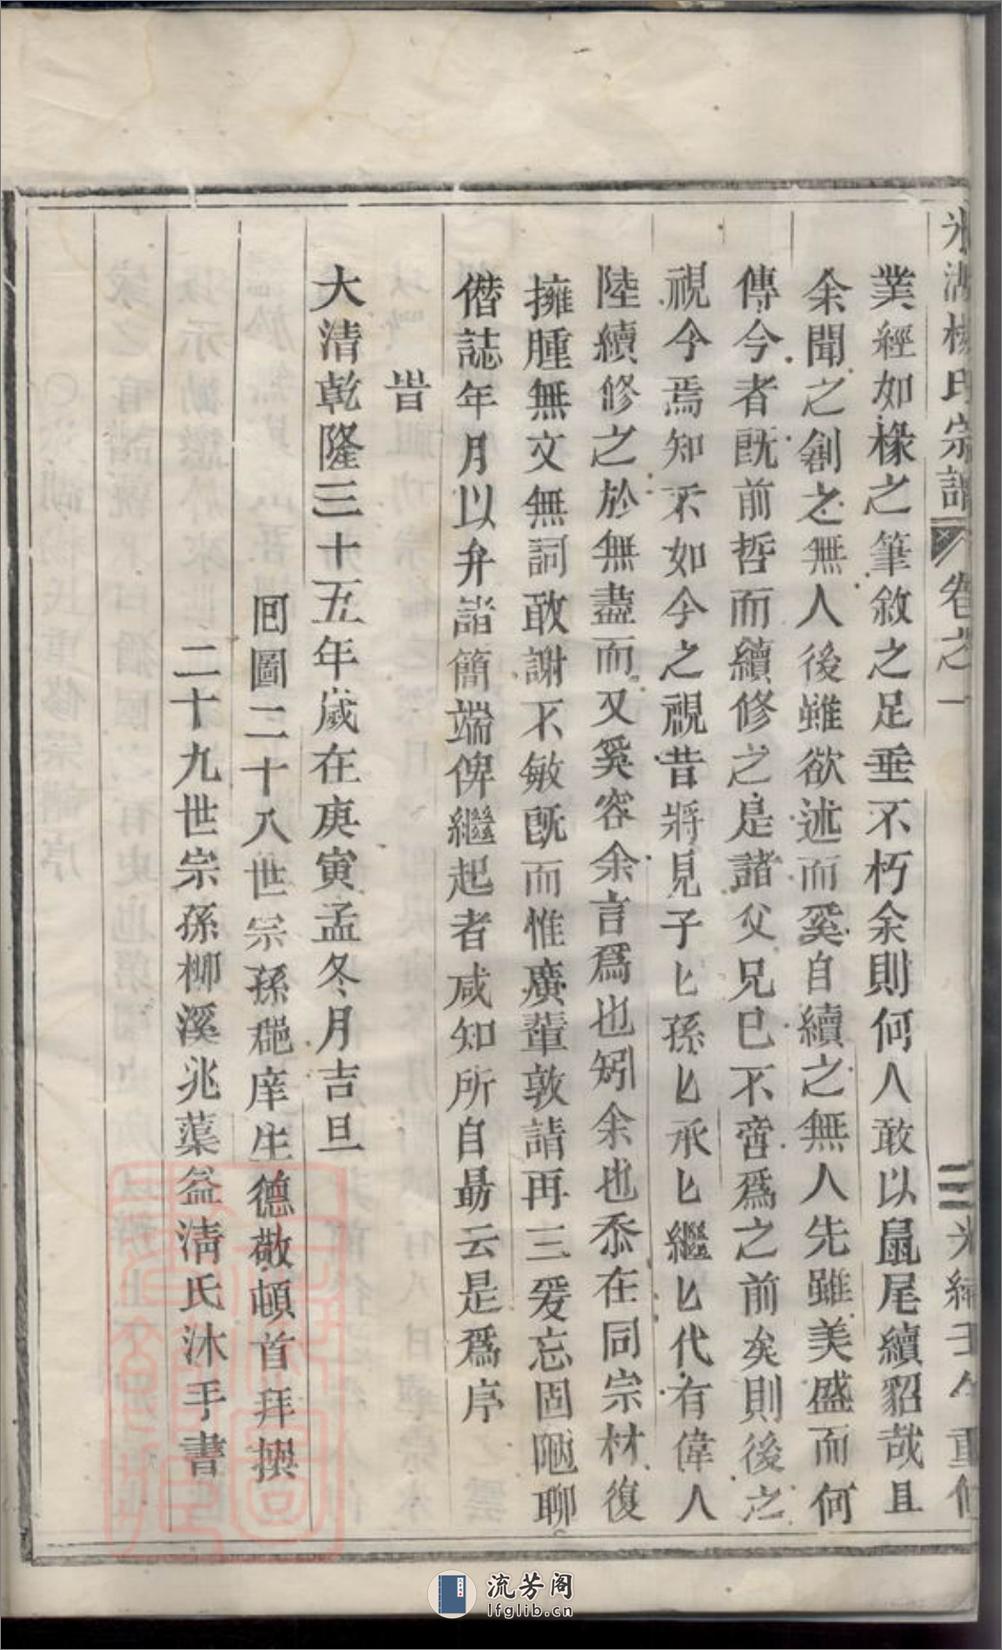 氷湖楊氏宗譜 卷之一 三 光緒壬午重修
業經如椽之筆敘之足垂不朽余則何人敢以鼠尾續貂哉且
余聞之創之無人後雖欲述而奚自續之無人先雖美盛而何
傳今者既前哲而續修之是諸父兄已不啻爲之前矣則後之
視今焉知不如今之視昔將見子匕孫匕承匕繼匕代有偉人
陸續修之於無盡而又奚容余言爲也矧余也忝在同宗材復
擁腫無文無詞敢謝不敏既而惟廣輩敦請再三爰忘固陋聊
僭誌年月以弁諸簡端俾繼起者咸知所自勗云是爲序
旹
大清乾隆三十五年歲在庚寅孟冬月吉旦
囘圖二十八世宗孫郒庠生德敬頓首拜撰
二十九世宗孫柳溪兆蕖益清氏沐手書
流芳阁
lfglib.cn